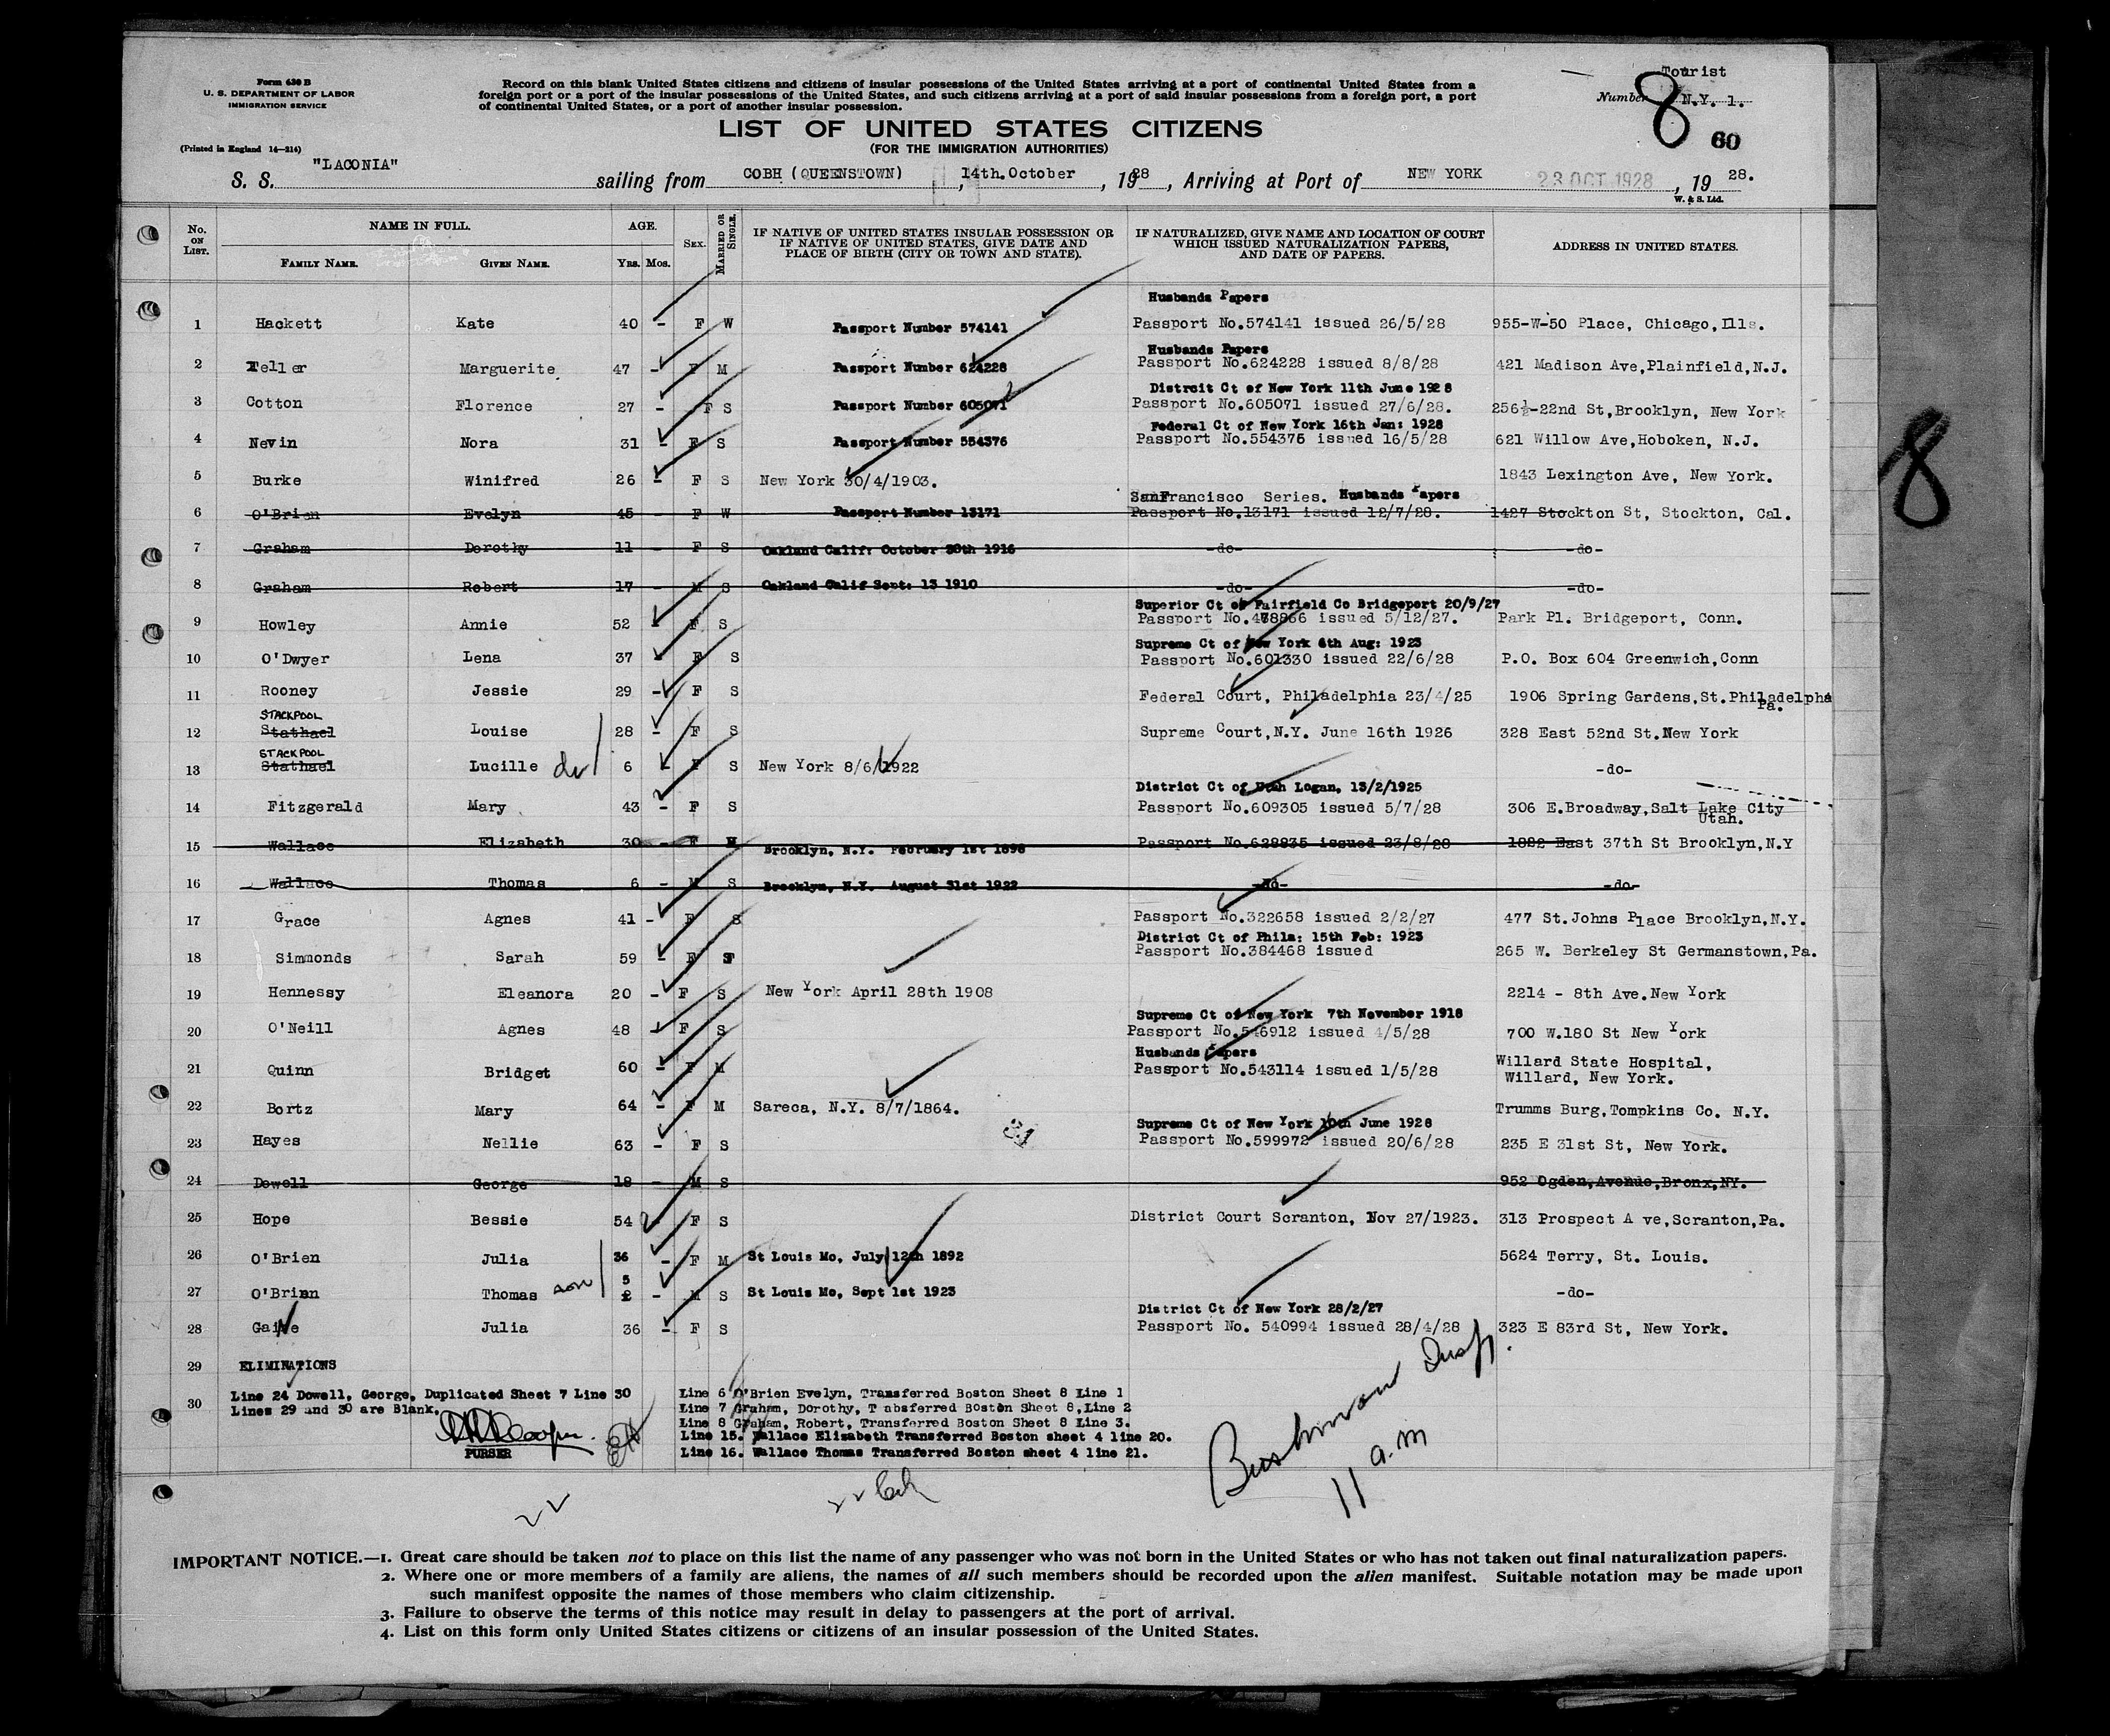 Form 630 B
U. S. DEPARTMENT OF LABOR
IMMIGRATION SERVICE
(Printed in England 14—214)
Record on this blank United States citizens and citizens of insular possessions of the United States arriving at a port of continental United States from a
foreign port or a port of the insular possessions of the United States, and such citizens arriving at a port of said insular possessions from a foreign port, a port
of continental United States, or a port of another insular possession.
LIST OF UNITED STATES CITIZENS
(FOR THE IMMIGRATION AUTHORITIES)
Tourist
Number N.Y. 1.
8
60
S. S. "LACONIA" sailing from COBH (QUEENSTOWN), 14th.October, 1928, Arriving at Port of NEW YORK 23 OCT 1928, 1928.
W. & S. Ltd.
No. ON LIST. NAME IN FULL. AGE. SEX. MARRIED OR SINGLE. IF NATIVE OF UNITED STATES INSULAR POSSESSION OR IF NATIVE OF UNITED STATES, GIVE DATE AND PLACE OF BIRTH (CITY OR TOWN AND STATE). IF NATURALIZED, GIVE NAME AND LOCATION OF COURT WHICH ISSUED NATURALIZATION PAPERS, AND DATE OF PAPERS. ADDRESS IN UNITED STATES.
FAMILY NAME. GIVEN NAME. YRS. MOS.
Husbands Papers
1 Hackett Kate 40 - F W Passport Number 574141 Passport No.574141 issued 26/5/28 955-W-50 Place, Chicago,Ills.
Husbands Papers
2 Teller Marguerite 47 - F M Passport Number 624228 Passport No.624228 issued 8/8/28 421 Madison Ave,Plainfield,N.J.
Distroit Ct of New York 11th June 1928
3 Cotton Florence 27 - F S Passport Number 605071 Passport No.605071 issued 27/6/28. 256½-22nd St,Brooklyn, New York
Federal Ct of New York 16th Jan: 1928
4 Nevin Nora 31 - F S Passport Number 554376 Passport No.554376 issued 16/5/28 621 Willow Ave,Hoboken, N.J.
5 Burke Winifred 26 - F S New York 30/4/1903. 1843 Lexington Ave, New York.
SanFrancisco Series. Husbands Papers
6 O'Brien Evelyn 45 - F W Passport Number 13171 Passport No.13171 issued 12/7/28. 1427 Stockton St, Stockton, Cal.
7 Graham Dorothy 11 - F S Oakland Calif: October 30th 1916 -do- -do-
8 Graham Robert 17 - M S Oakland Calif Sept: 13 1910 -do- -do-
Superior Ct of Fairfield Co Bridgeport 20/9/27
9 Howley Annie 52 - F S Passport No.478856 issued 5/12/27. Park Pl. Bridgeport, Conn.
Supreme Ct of New York 6th Aug: 1923
10 O'Dwyer Lena 37 F S Passport No.601330 issued 22/6/28 P.O. Box 604 Greenwich,Conn
11 Rooney Jessie 29 - F S Federal Court, Philadelphia 23/4/25 1906 Spring Gardens,St.Philadelpha
Pa.
STACKPOOL
12 Stathael Louise 28 - F S Supreme Court,N.Y. June 16th 1926 328 East 52nd St.New York
STACKPOOL
13 Stathael Lucille 6 - F S New York 8/6/1922 -do-
District Ct of Utah Logan, 13/2/1925
14 Fitzgerald Mary 43 - F S Passport No.609305 issued 5/7/28 306 E.Broadway,Salt Lake City
Utah.
15 Wallace Elizabeth 30 - F M Brooklyn, N.Y. February 1st 1898 Passport No.628835 issued 23/8/28 1822 East 37th St Brooklyn,N.Y
16 Wallace Thomas 6 - M S Brooklyn, N.Y. August 31st 1922 -do- -do-
17 Grace Agnes 41 - F S Passport No.322658 issued 2/2/27 477 St.Johns Place Brooklyn,N.Y.
District Ct of Phila: 15th Feb: 1923
18 Simmonds Sarah 59 - F Passport No.384468 issued 265 W. Berkeley St Germanstown,Pa.
19 Hennessy Eleanora 20 - F S New York April 28th 1908 2214 - 8th Ave.New York
Supreme Ct of New York 7th November 1918
20 O'Neill Agnes 48 - F S Passport No.546912 issued 4/5/28 700 W.180 St New York
Husbands Papers
21 Quinn Bridget 60 - F M Passport No.543114 issued 1/5/28 Willard State Hospital,
Willard, New York.
22 Bortz Mary 64 - F M Sareca, N.Y. 8/7/1864. Trumms Burg,Tompkins Co. N.Y.
Supreme Ct of New York 10th June 1928
23 Hayes Nellie 63 - F S Passport No.599972 issued 20/6/28 235 E 31st St, New York.
24 Dowell George 18 - M S 952 Ogden,Avenue,Bronx,NY.
25 Hope Bessie 54 - F S District Court Scranton, Nov 27/1923. 313 Prospect A ve,Scranton,Pa.
26 O'Brien Julia 36 - F M St Louis Mo, July 12th 1892 5624 Terry, St. Louis.
5
27 O'Brien Thomas son 2 - M S St Louis Mo, Sept 1st 1923 -do-
District Ct of New York 28/2/27
28 Julia 36 - F S Passport No. 540994 issued 28/4/28 323 E 83rd St, New York.
29 ELIMINATIONS
30 Line 24 Dowell, George, Duplicated Sheet 7 Line 30
Lines 29 and 30 are Blank.
PURSER
Line 6 O'Brien Evelyn, Transferred Boston Sheet 8 Line 1
Line 7 Graham, Dorothy, T absferred Boston Sheet 8,Line 2
Line 8 Graham, Robert, Transferred Boston Sheet 8 Line 3.
Line 15. Wallace Elizabeth Transferred Boston sheet 4 line 20.
Line 16. Wallace Thomas Transferred Boston sheet 4 line 21.
11 a.m
IMPORTANT NOTICE.—1. Great care should be taken not to place on this list the name of any passenger who was not born in the United States or who has not taken out final naturalization papers.
2. Where one or more members of a family are aliens, the names of all such members should be recorded upon the alien manifest. Suitable notation may be made upon
such manifest opposite the names of those members who claim citizenship.
3. Failure to observe the terms of this notice may result in delay to passengers at the port of arrival.
4. List on this form only United States citizens or citizens of an insular possession of the United States.
8